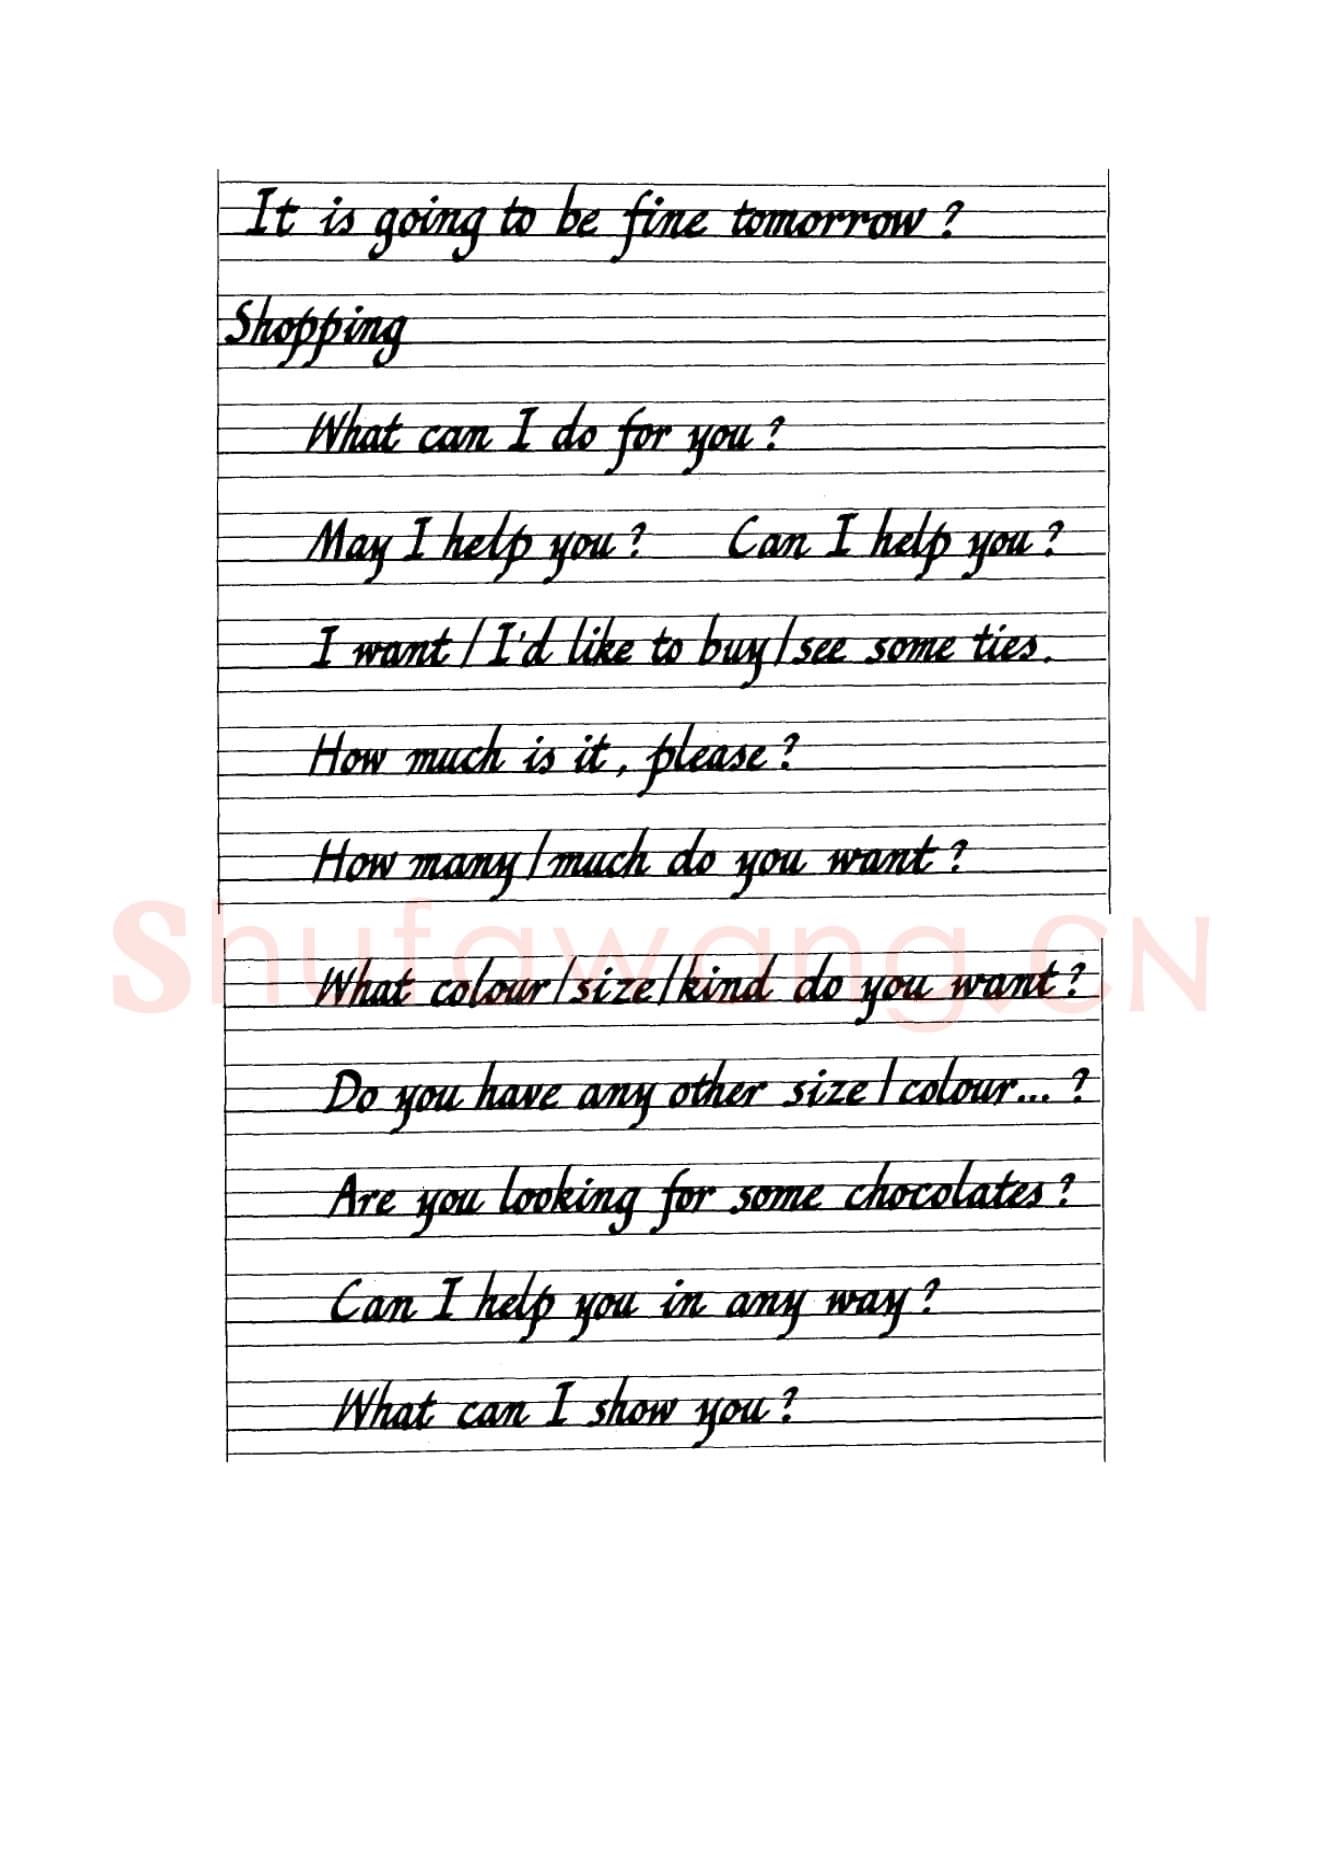 It is going to be fine tomorrow?
Shopping
What can I do for you?
May I help you? Can I help you?
I want/I'd like to buy/see some ties.
How much is it, please?
How many/much do you want?
Shufawang.CN
What colour/size/kind do you want?
Do you have any other size/colour...?
Are you looking for some chocolates?
Can I help you in any way?
What can I show you?